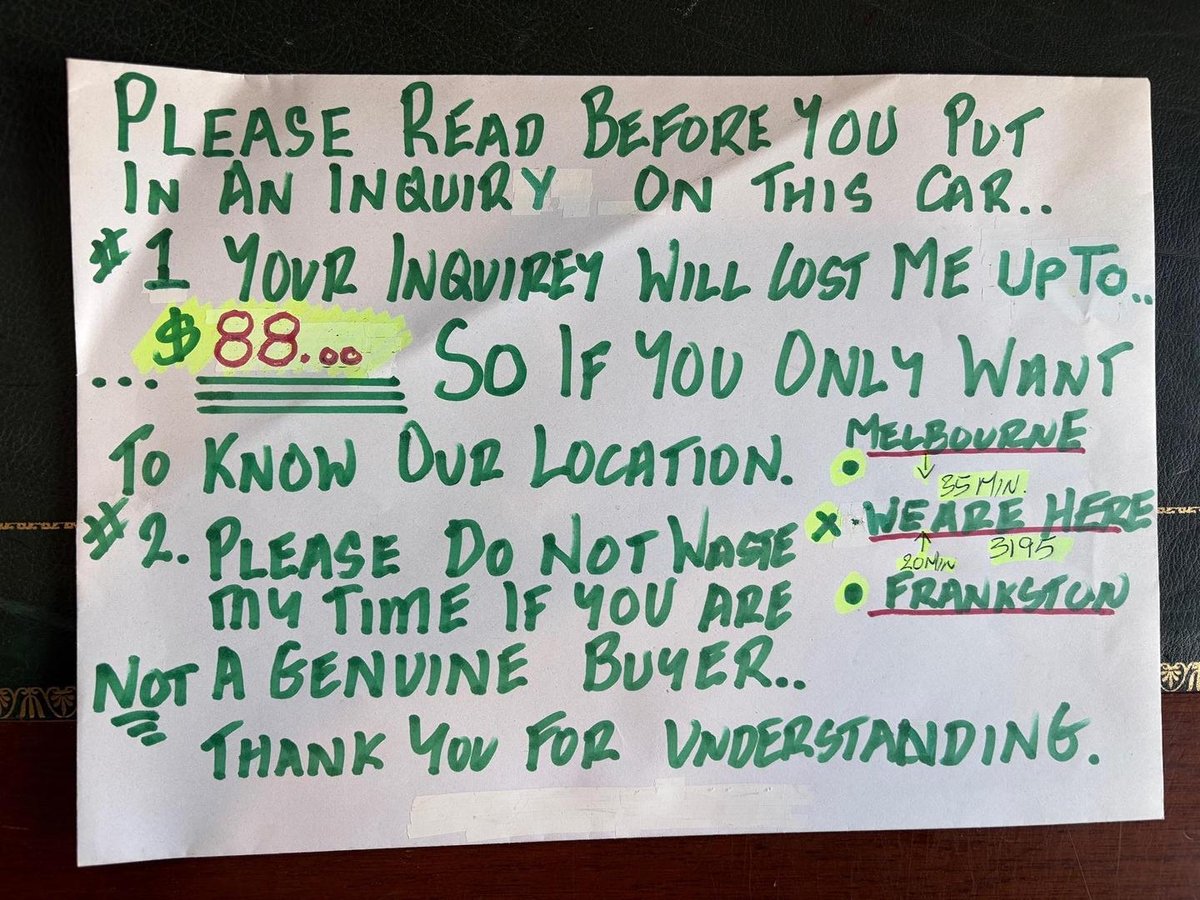 PLEASE READ BEFORE YOU PUT
IN AN INQUIRY ON THIS CAR..
#1 YOUR INQUIREY WILL COST ME UP TO..
... $88.00 SO IF YOU ONLY WANT
TO KNOW OUR LOCATION.
#2. PLEASE DO NOT WASTE
MY TIME IF YOU ARE
NOT A GENUINE BUYER..
THANK YOU FOR UNDERSTANDING.
MELBOURNE
35 MIN.
X WE ARE HERE
20 MIN 3195
FRANKSTON